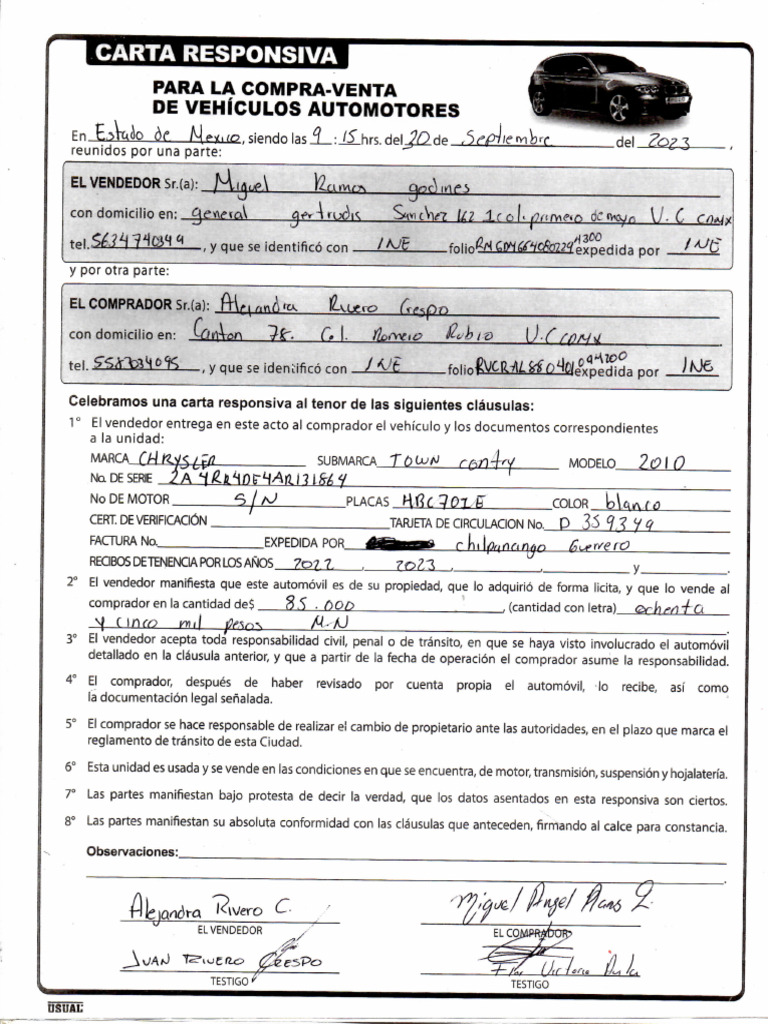 CARTA RESPONSIVA
PARA LA COMPRA-VENTA
DE VEHÍCULOS AUTOMOTORES
En Estado de Mexico, siendo las 9 :15 hrs. del 20 de Septiembre del 2023,
reunidos por una parte:
EL VENDEDOR Sr.(a): Miguel Ramos godines
con domicilio en: general gertrudis Sanchez 162 1 col. primero de mayo V.C CDMX
tel. 5634740349, y que se identificó con INE folio expedida por INE
y por otra parte:
EL COMPRADOR Sr.(a): Alejandra Rivero Crespo
con domicilio en: Canton 78. Col. Romero Rubio V.C CDMX
tel. 5587034095, y que se identificó con INE folio RVCRAL88040109M200 expedida por INE
Celebramos una carta responsiva al tenor de las siguientes cláusulas:
1° El vendedor entrega en este acto al comprador el vehículo y los documentos correspondientes
a la unidad:
MARCA CHRYSLER SUBMARCA TOWN contry MODELO 2010
No. DE SERIE 2A4RR4DE4AR131864
No DE MOTOR S/N PLACAS HBC701E COLOR blanco
CERT. DE VERIFICACIÓN TARJETA DE CIRCULACION No. D 359349
FACTURA No. EXPEDIDA POR chilpancingo Guerrero
RECIBOS DE TENENCIA POR LOS AÑOS 2022, 2023, y .
2° El vendedor manifiesta que este automóvil es de su propiedad, que lo adquirió de forma licita, y que lo vende al
comprador en la cantidad de$ 85.000, (cantidad con letra) ochenta
y cinco mil pesos M.N
3° El vendedor acepta toda responsabilidad civil, penal o de tránsito, en que se haya visto involucrado el automóvil
detallado en la cláusula anterior, y que a partir de la fecha de operación el comprador asume la responsabilidad.
4° El comprador, después de haber revisado por cuenta propia el automóvil, lo recibe, así como
la documentación legal señalada.
5° El comprador se hace responsable de realizar el cambio de propietario ante las autoridades, en el plazo que marca el
reglamento de tránsito de esta Ciudad.
6° Esta unidad es usada y se vende en las condiciones en que se encuentra, de motor, transmisión, suspensión y hojalatería.
7° Las partes manifiestan bajo protesta de decir la verdad, que los datos asentados en esta responsiva son ciertos.
8° Las partes manifiestan su absoluta conformidad con las cláusulas que anteceden, firmando al calce para constancia.
Observaciones:
Alejandra Rivero C. Miguel Angel
EL VENDEDOR EL COMPRADOR
JUAN RIVERO CRESPO Victoria
TESTIGO TESTIGO
USUAL